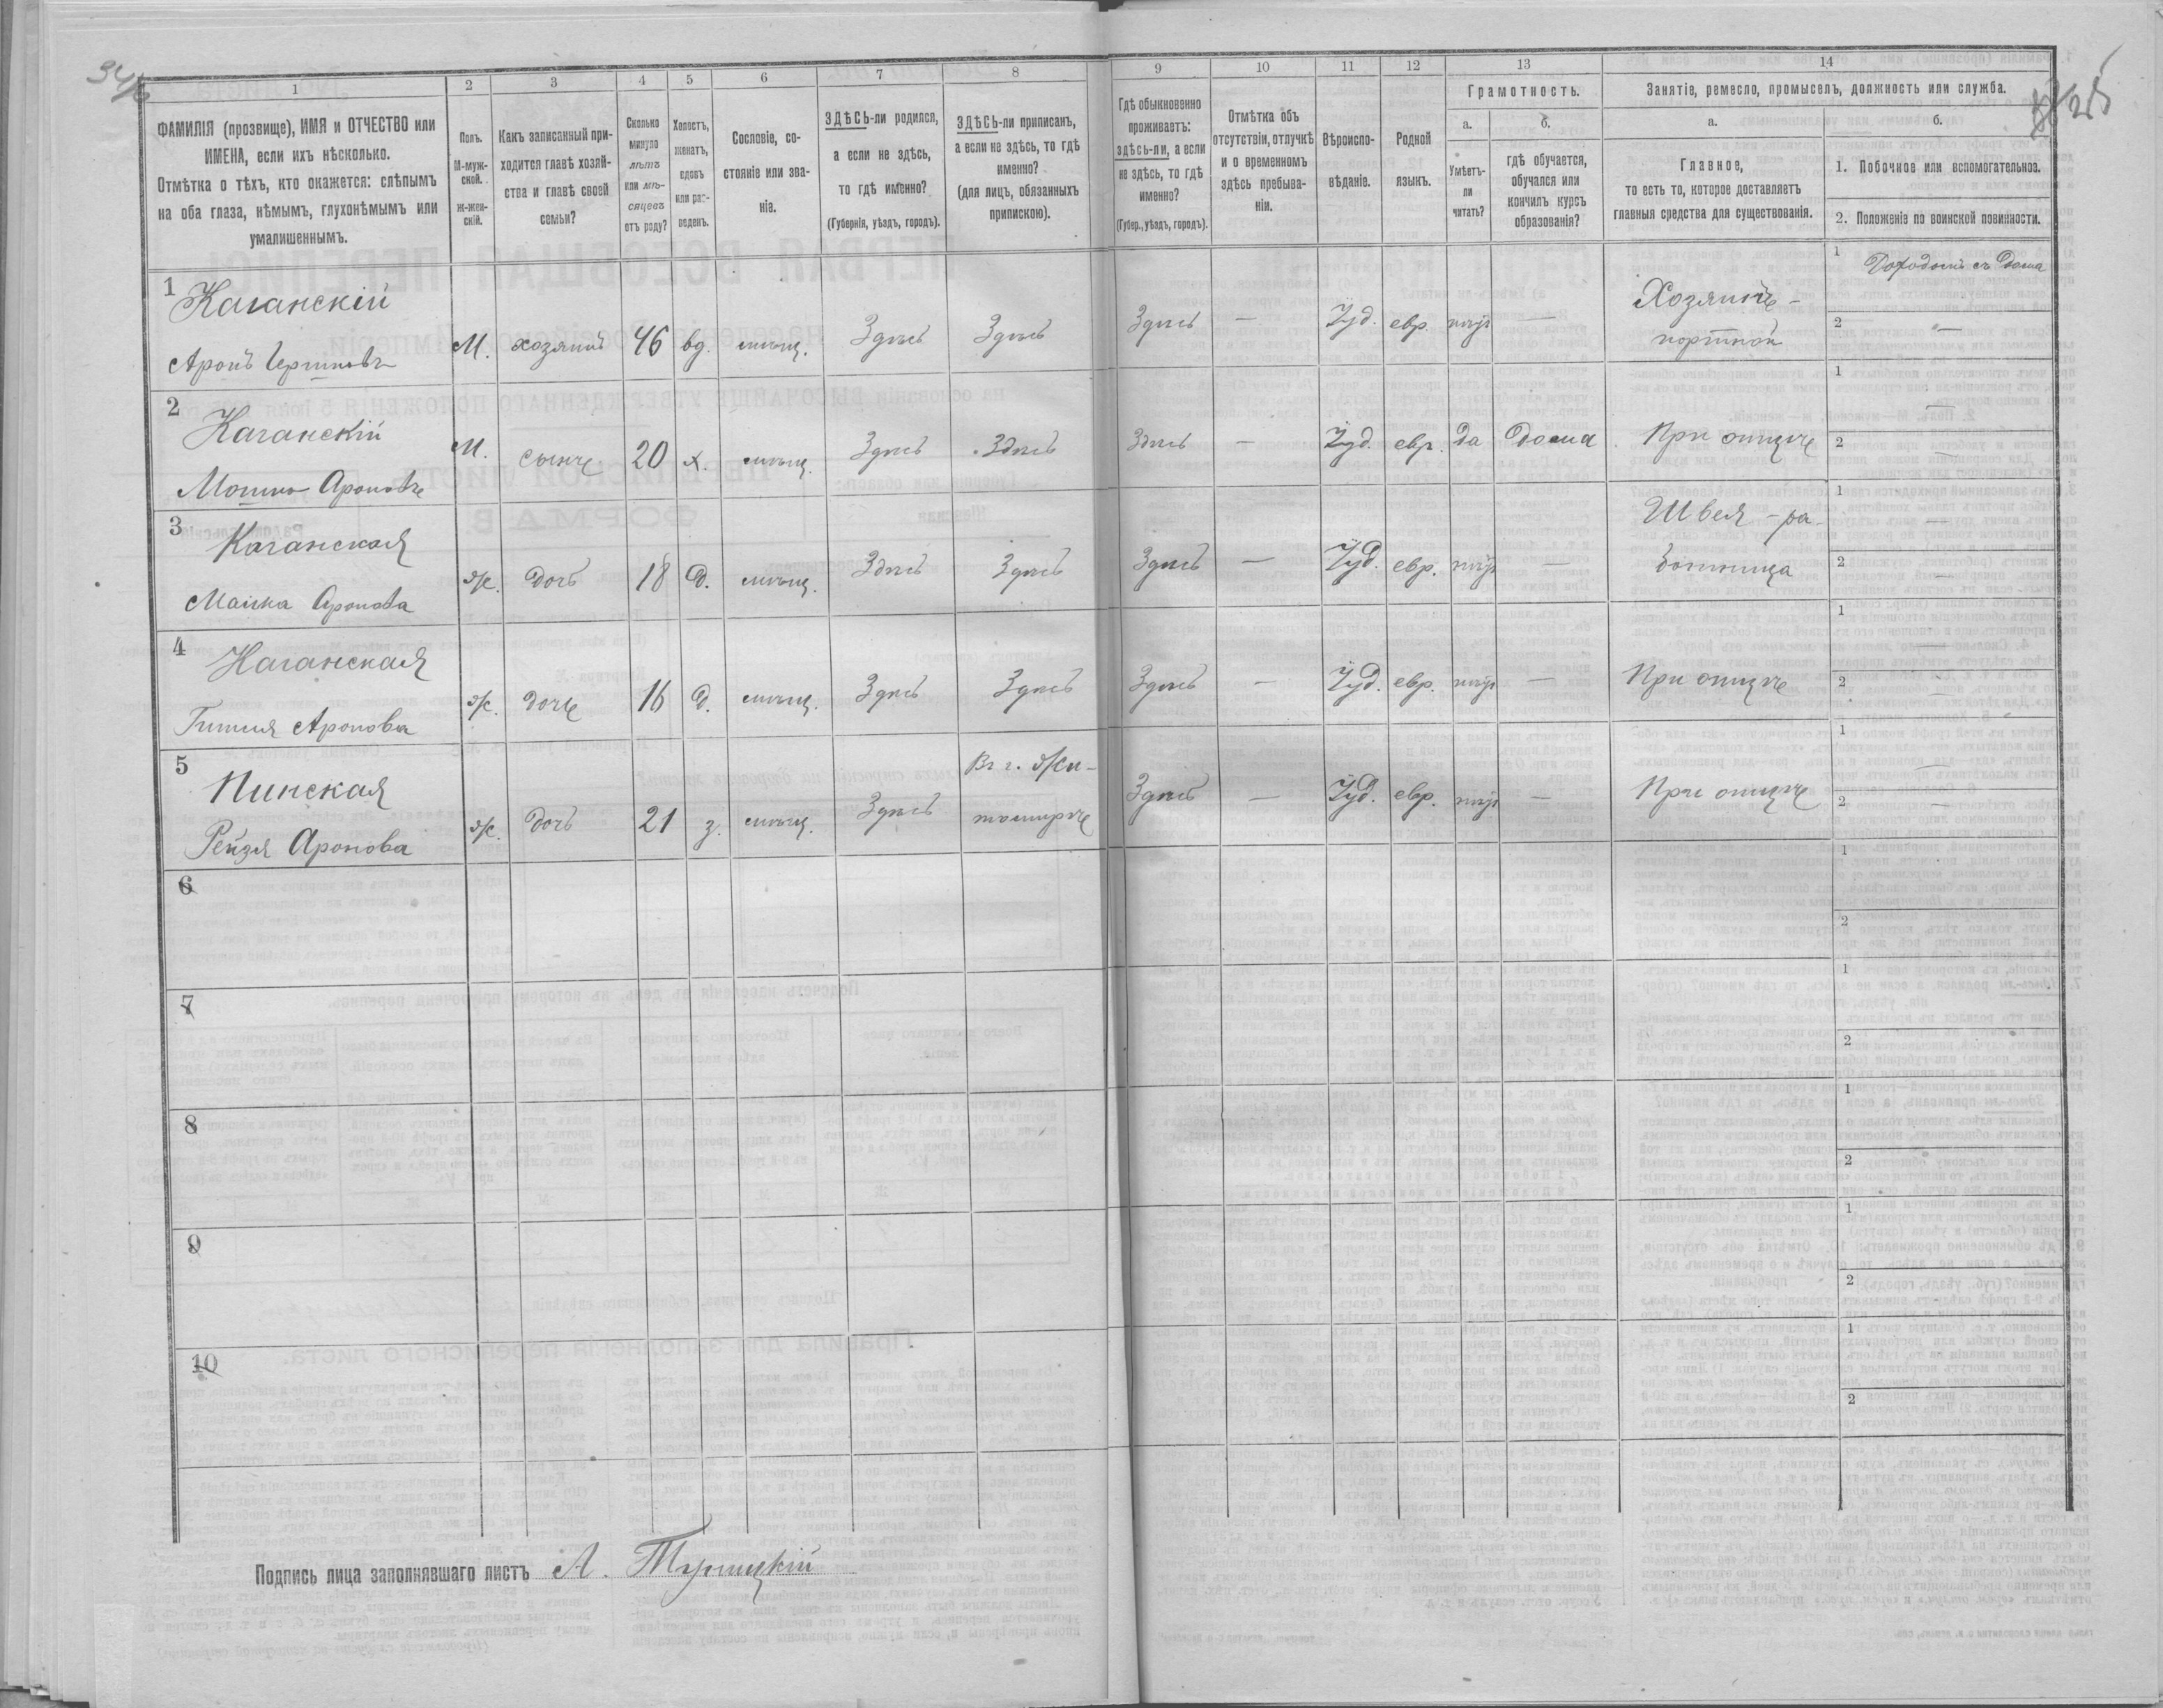 34/б
25
1 2 3 4 5 6 7 8 9 10 11 12 13 14
ФАМИЛІЯ (прозвище), ИМЯ и ОТЧЕСТВО или ИМЕНА, если ихъ нѣсколько.
Отмѣтка о тѣхъ, кто окажется: слѣпымъ на оба глаза, нѣмымъ, глухонѣмымъ или умалишеннымъ.
Полъ. М-мужской. Ж-женскій.
Какъ записанный приходится главѣ хозяйства и главѣ своей семьи?
Сколько минуло лѣтъ или мѣсяцевъ отъ роду?
Холостъ, женатъ, вдовъ или разведенъ.
Сословіе, состояніе или званіе.
ЗДѢСЬ-ли родился, а если не здѣсь, то гдѣ именно?
(Губернія, уѣздъ, городъ).
ЗДѢСЬ-ли приписанъ, а если не здѣсь, то гдѣ именно?
(для лицъ, обязанныхъ припискою).
Гдѣ обыкновенно проживаетъ: здѣсь-ли, а если не здѣсь, то гдѣ именно?
(Губер., уѣздъ, городъ).
Отмѣтка объ отсутствіи, отлучкѣ и о временномъ здѣсь пребываніи.
Вѣроисповѣданіе.
Родной языкъ.
Грамотность.
а. Умѣетъ-ли читать?
б. гдѣ обучается, обучался или кончилъ курсъ образованія?
Занятіе, ремесло, промыселъ, должность или служба.
а. Главное, то есть то, которое доставляетъ главныя средства для существованія.
б.
1. Побочное или вспомогательное.
2. Положеніе по воинской повинности.
1 Каганскій
Аронъ М. хозяинъ 46 вд. мѣщ. Здѣсь Здѣсь Здѣсь — Іуд. евр. — Хозяинъ - портной 1 Доходомъ съ дома 2 —
2 Каганскій
Мошко Ароновъ М. сынъ 20 х. мѣщ. Здѣсь Здѣсь Здѣсь — Іуд. евр. да дома При отцѣ 1 — 2 —
3 Каганская
Аронова Ж. дочь 18 д. мѣщ. Здѣсь Здѣсь Здѣсь — Іуд. евр. — Швея - работница 1 — 2 —
4 Каганская
Аронова Ж. дочь 16 д. мѣщ. Здѣсь Здѣсь Здѣсь — Іуд. евр. — При отцѣ 1 — 2 —
5 Пинская
Рейзя Аронова Ж. дочь 21 з. мѣщ. Здѣсь Въ г. Житомирѣ Здѣсь — Іуд. евр. — При отцѣ 1 — 2 —
6 1 2
7 1 2
8 1 2
9 1 2
10 1 2
Подпись лица заполнявшаго листъ А.